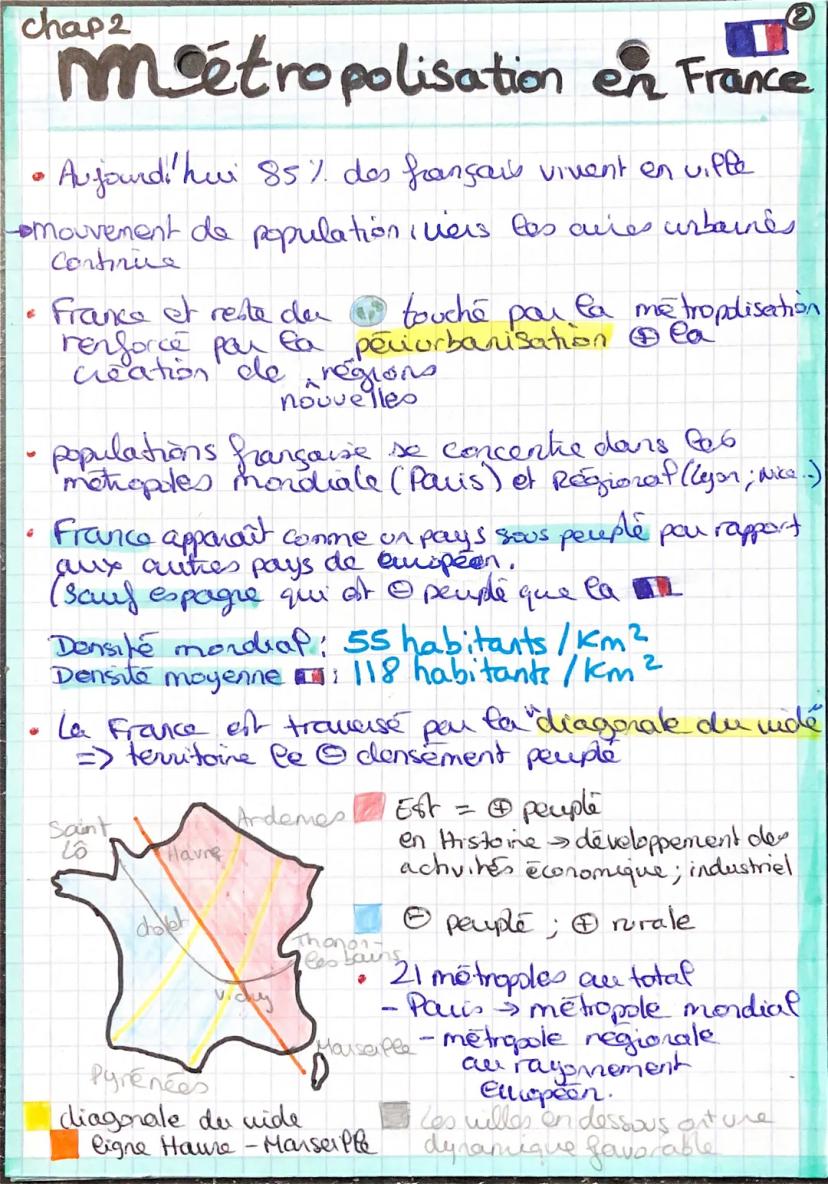 chap 2
②
Métropolisation en France
• Aujourd'hui 85 % des français vivent en ville
→ mouvement de population vers les aires urbaines
continue
• France et reste du touché par la métropolisation
renforcé par la périurbanisation ⊕ la
création de régions
nouvelles
• populations française se concentre dans les
métropoles mondiale (Paris) et Régional (Lyon ; Nice..)
• France apparaît comme un pays sous peuplé par rapport
aux autres pays de européen.
(sauf espagne qui est ⊖ peuplé que la
Densité mondial : 55 habitants / Km²
Densité moyenne : 118 habitants / Km²
• La France est traversé par la "diagonale du vide"
=> territoire le ⊖ densement peuplé
Saint
Lô
Ardennes
Havre
cholet
Thonon-
les bains
Vichy
Marseille
Pyrénées
Est = ⊕ peuplé
en Histoire → développement des
activités économique ; industriel
⊖ peuplé ; ⊕ rurale
• 21 métropoles au total
- Paris → métropole mondial
- métropole régionale
au rayonnement
européen.
diagonale du vide
ligne Havre - Marseille
Les villes en dessous ont une
dynamique favorable